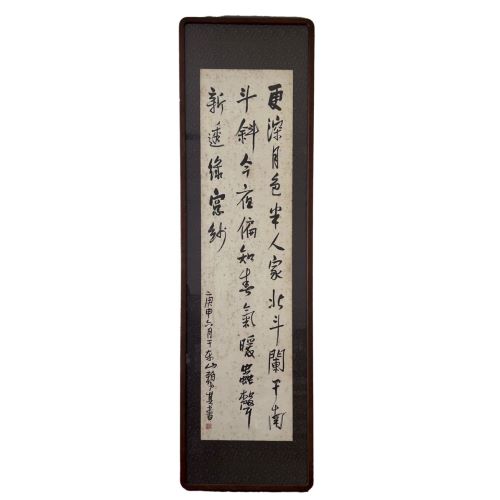 更深月色半人家北斗闌干南
斗斜今夜偏知春氣暖蟲聲
新透綠窓紗
庚申六月于泰山賴少其書